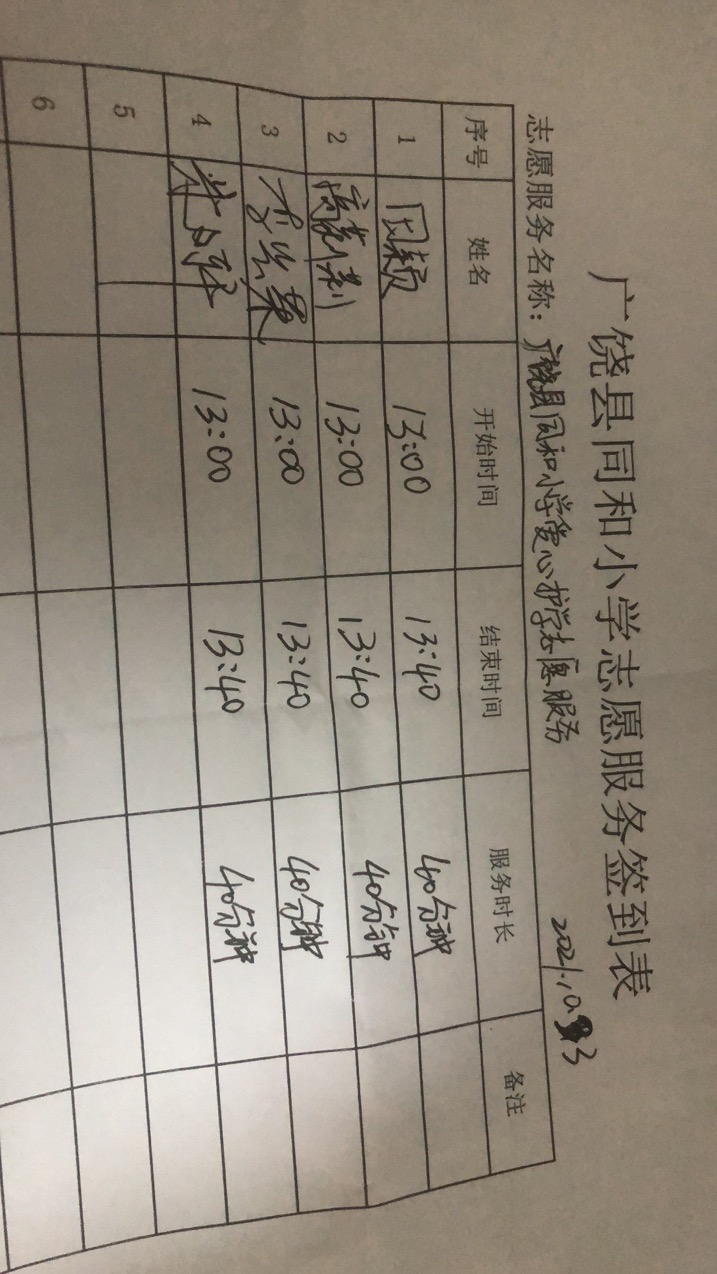 广饶县同和小学志愿服务签到表
志愿服务名称：广饶县同和小学爱心护学志愿服务 2021.10
序号 姓名 开始时间 结束时间 服务时长 备注
1 13:00 13:40 40分钟
2 13:00 13:40 40分钟
3 13:00 13:40 40分钟
4 13:00 13:40 40分钟
5
6